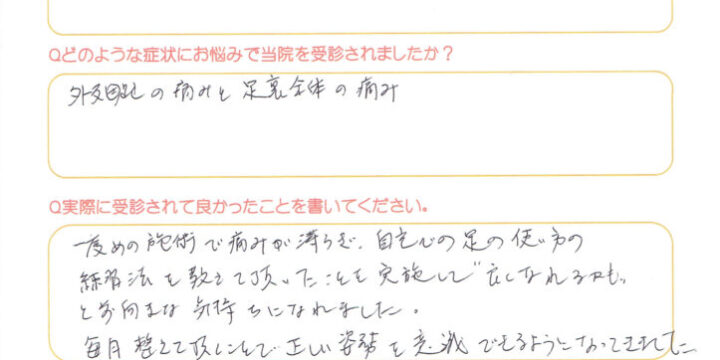 Qどのような症状にお悩みで当院を受診されましたか？
外反母趾の痛みと足裏全体の痛み
Q実際に受診されて良かったことを書いてください。
一度めの施術で痛みが薄らぎ、自宅での足の使い方の
練習法を教えて頂いたことを実施して"良くなれるかも。
と前向きな気持ちになれました。
毎月整えて頂くことで正しい姿勢を意識できるようになってきました